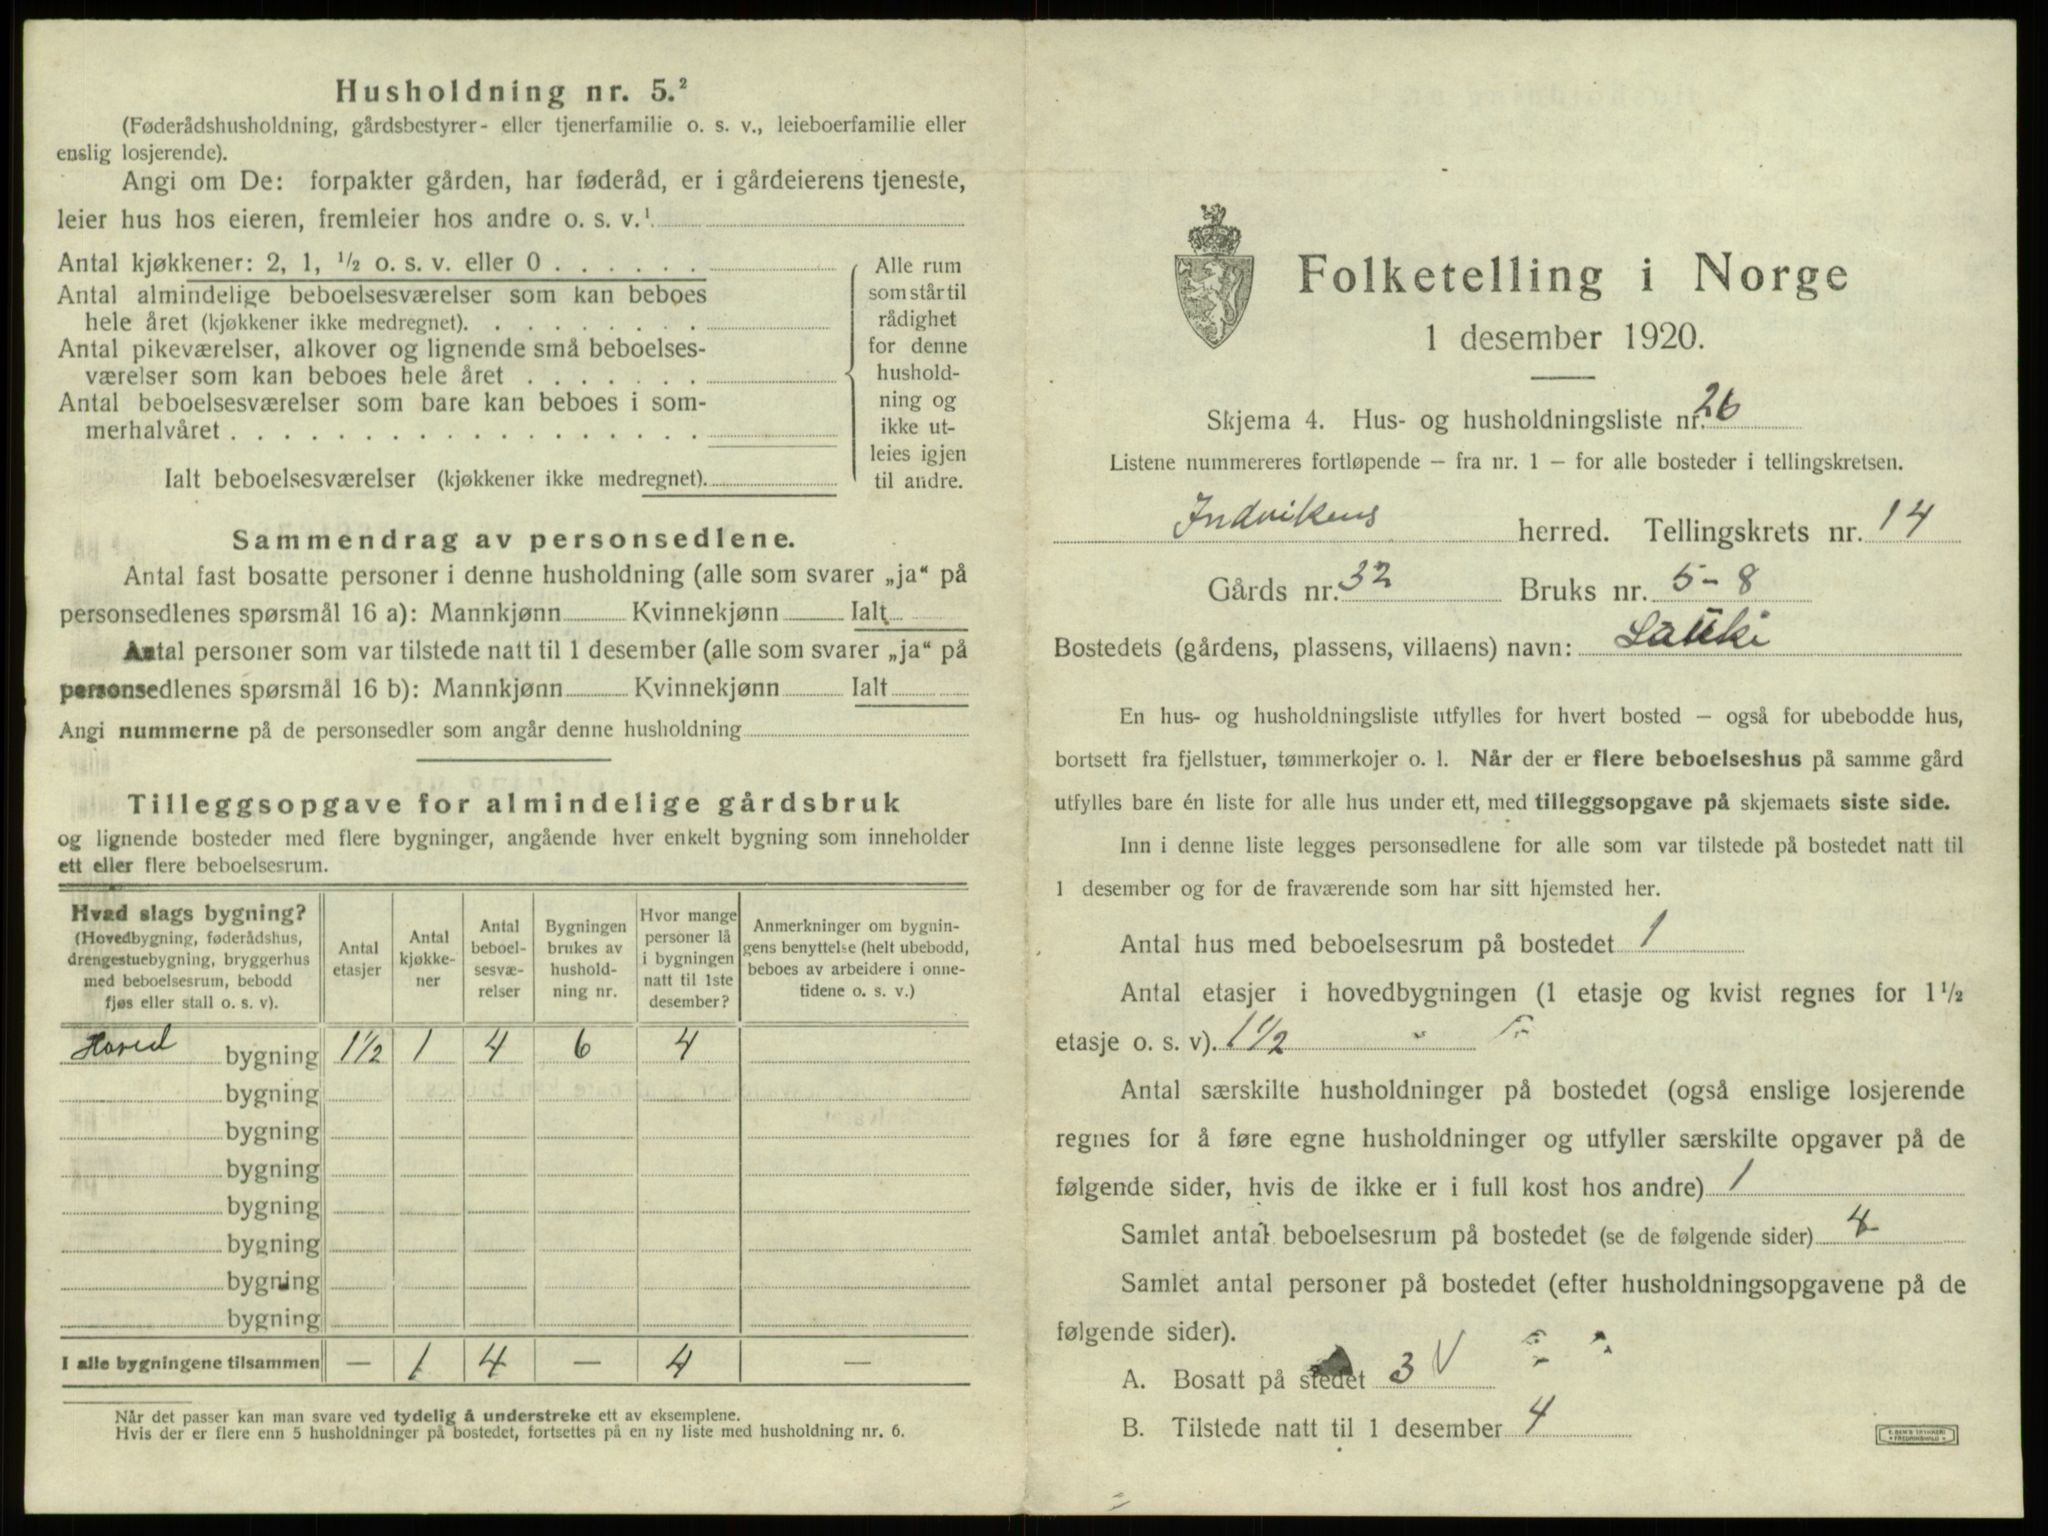 Husholdning nr. 5.²
(Føderådshusholdning, gårdsbestyrer- eller tjenerfamilie o. s. v., leieboerfamilie eller
enslig losjerende).
Angi om De: forpakter gården, har føderåd, er i gårdeierens tjeneste,
leier hus hos eieren, fremleier hos andre o. s. v.¹
Antal kjøkkener: 2, 1, ½ o. s. v. eller 0 . . . . . .
Antal almindelige beboelsesværelser som kan beboes
hele året (kjøkkener ikke medregnet). . . . . . . . .
Antal pikeværelser, alkover og lignende små beboelses-
værelser som kan beboes hele året . . . . . . .
Antal beboelsesværelser som bare kan beboes i som-
merhalvåret . . . . . . . . . . . . . . . . . .
Ialt beboelsesværelser (kjøkkener ikke medregnet).
Alle rum
som står til
rådighet
for denne
hushold-
ning og
ikke ut-
leies igjen
til andre.
Sammendrag av personsedlene.
Antal fast bosatte personer i denne husholdning (alle som svarer „ja“ på
personsedlenes spørsmål 16 a): Mannkjønn Kvinnekjønn Ialt
Antal personer som var tilstede natt til 1 desember (alle som svarer „ja“ på
personsedlenes spørsmål 16 b): Mannkjønn Kvinnekjønn Ialt
Angi nummerne på de personsedler som angår denne husholdning
Tilleggsopgave for almindelige gårdsbruk
og lignende bosteder med flere bygninger, angående hver enkelt bygning som inneholder
ett eller flere beboelsesrum.
Hvad slags bygning?
(Hovedbygning, føderådshus,
drengestuebygning, bryggerhus
med beboelsesrum, bebodd
fjøs eller stall o. s. v).
Antal
etasjer
Antal
kjøkke-
ner
Antal
beboel-
sesvæ-
relser
Bygningen
brukes av
hushold-
ning nr.
Hvor mange
personer lå
i bygningen
natt til 1ste
desember?
Anmerkninger om bygnin-
gens benyttelse (helt ubebodd,
beboes av arbeidere i onne-
tidene o. s. v.)
Hoved bygning 1½ 1 4 6 4
bygning
bygning
bygning
bygning
bygning
bygning
bygning
I alle bygningene tilsammen — 1 4 — 4 —
Når det passer kan man svare ved tydelig å understreke ett av eksemplene.
Hvis der er flere enn 5 husholdninger på bostedet, fortsettes på en ny liste med husholdning nr. 6.
Folketelling i Norge
1 desember 1920.
Skjema 4. Hus- og husholdningsliste nr. 26
Listene nummereres fortløpende – fra nr. 1 – for alle bosteder i tellingskretsen.
Indvikens herred. Tellingskrets nr. 14
Gårds nr. 32 Bruks nr. 5-8
Bostedets (gårdens, plassens, villaens) navn:
En hus- og husholdningsliste utfylles for hvert bosted – også for ubebodde hus,
bortsett fra fjellstuer, tømmerkojer o. l. Når der er flere beboelseshus på samme gård
utfylles bare én liste for alle hus under ett, med tilleggsopgave på skjemaets siste side.
Inn i denne liste legges personsedlene for alle som var tilstede på bostedet natt til
1 desember og for de fraværende som har sitt hjemsted her.
Antal hus med beboelsesrum på bostedet 1
Antal etasjer i hovedbygningen (1 etasje og kvist regnes for 1½
etasje o. s. v). 1½
Antal særskilte husholdninger på bostedet (også enslige losjerende
regnes for å føre egne husholdninger og utfyller særskilte opgaver på de
følgende sider, hvis de ikke er i full kost hos andre) 1
Samlet antal beboelsesrum på bostedet (se de følgende sider) 4
Samlet antal personer på bostedet (efter husholdningsopgavene på de
følgende sider).
A. Bosatt på stedet 3 V
B. Tilstede natt til 1 desember 4